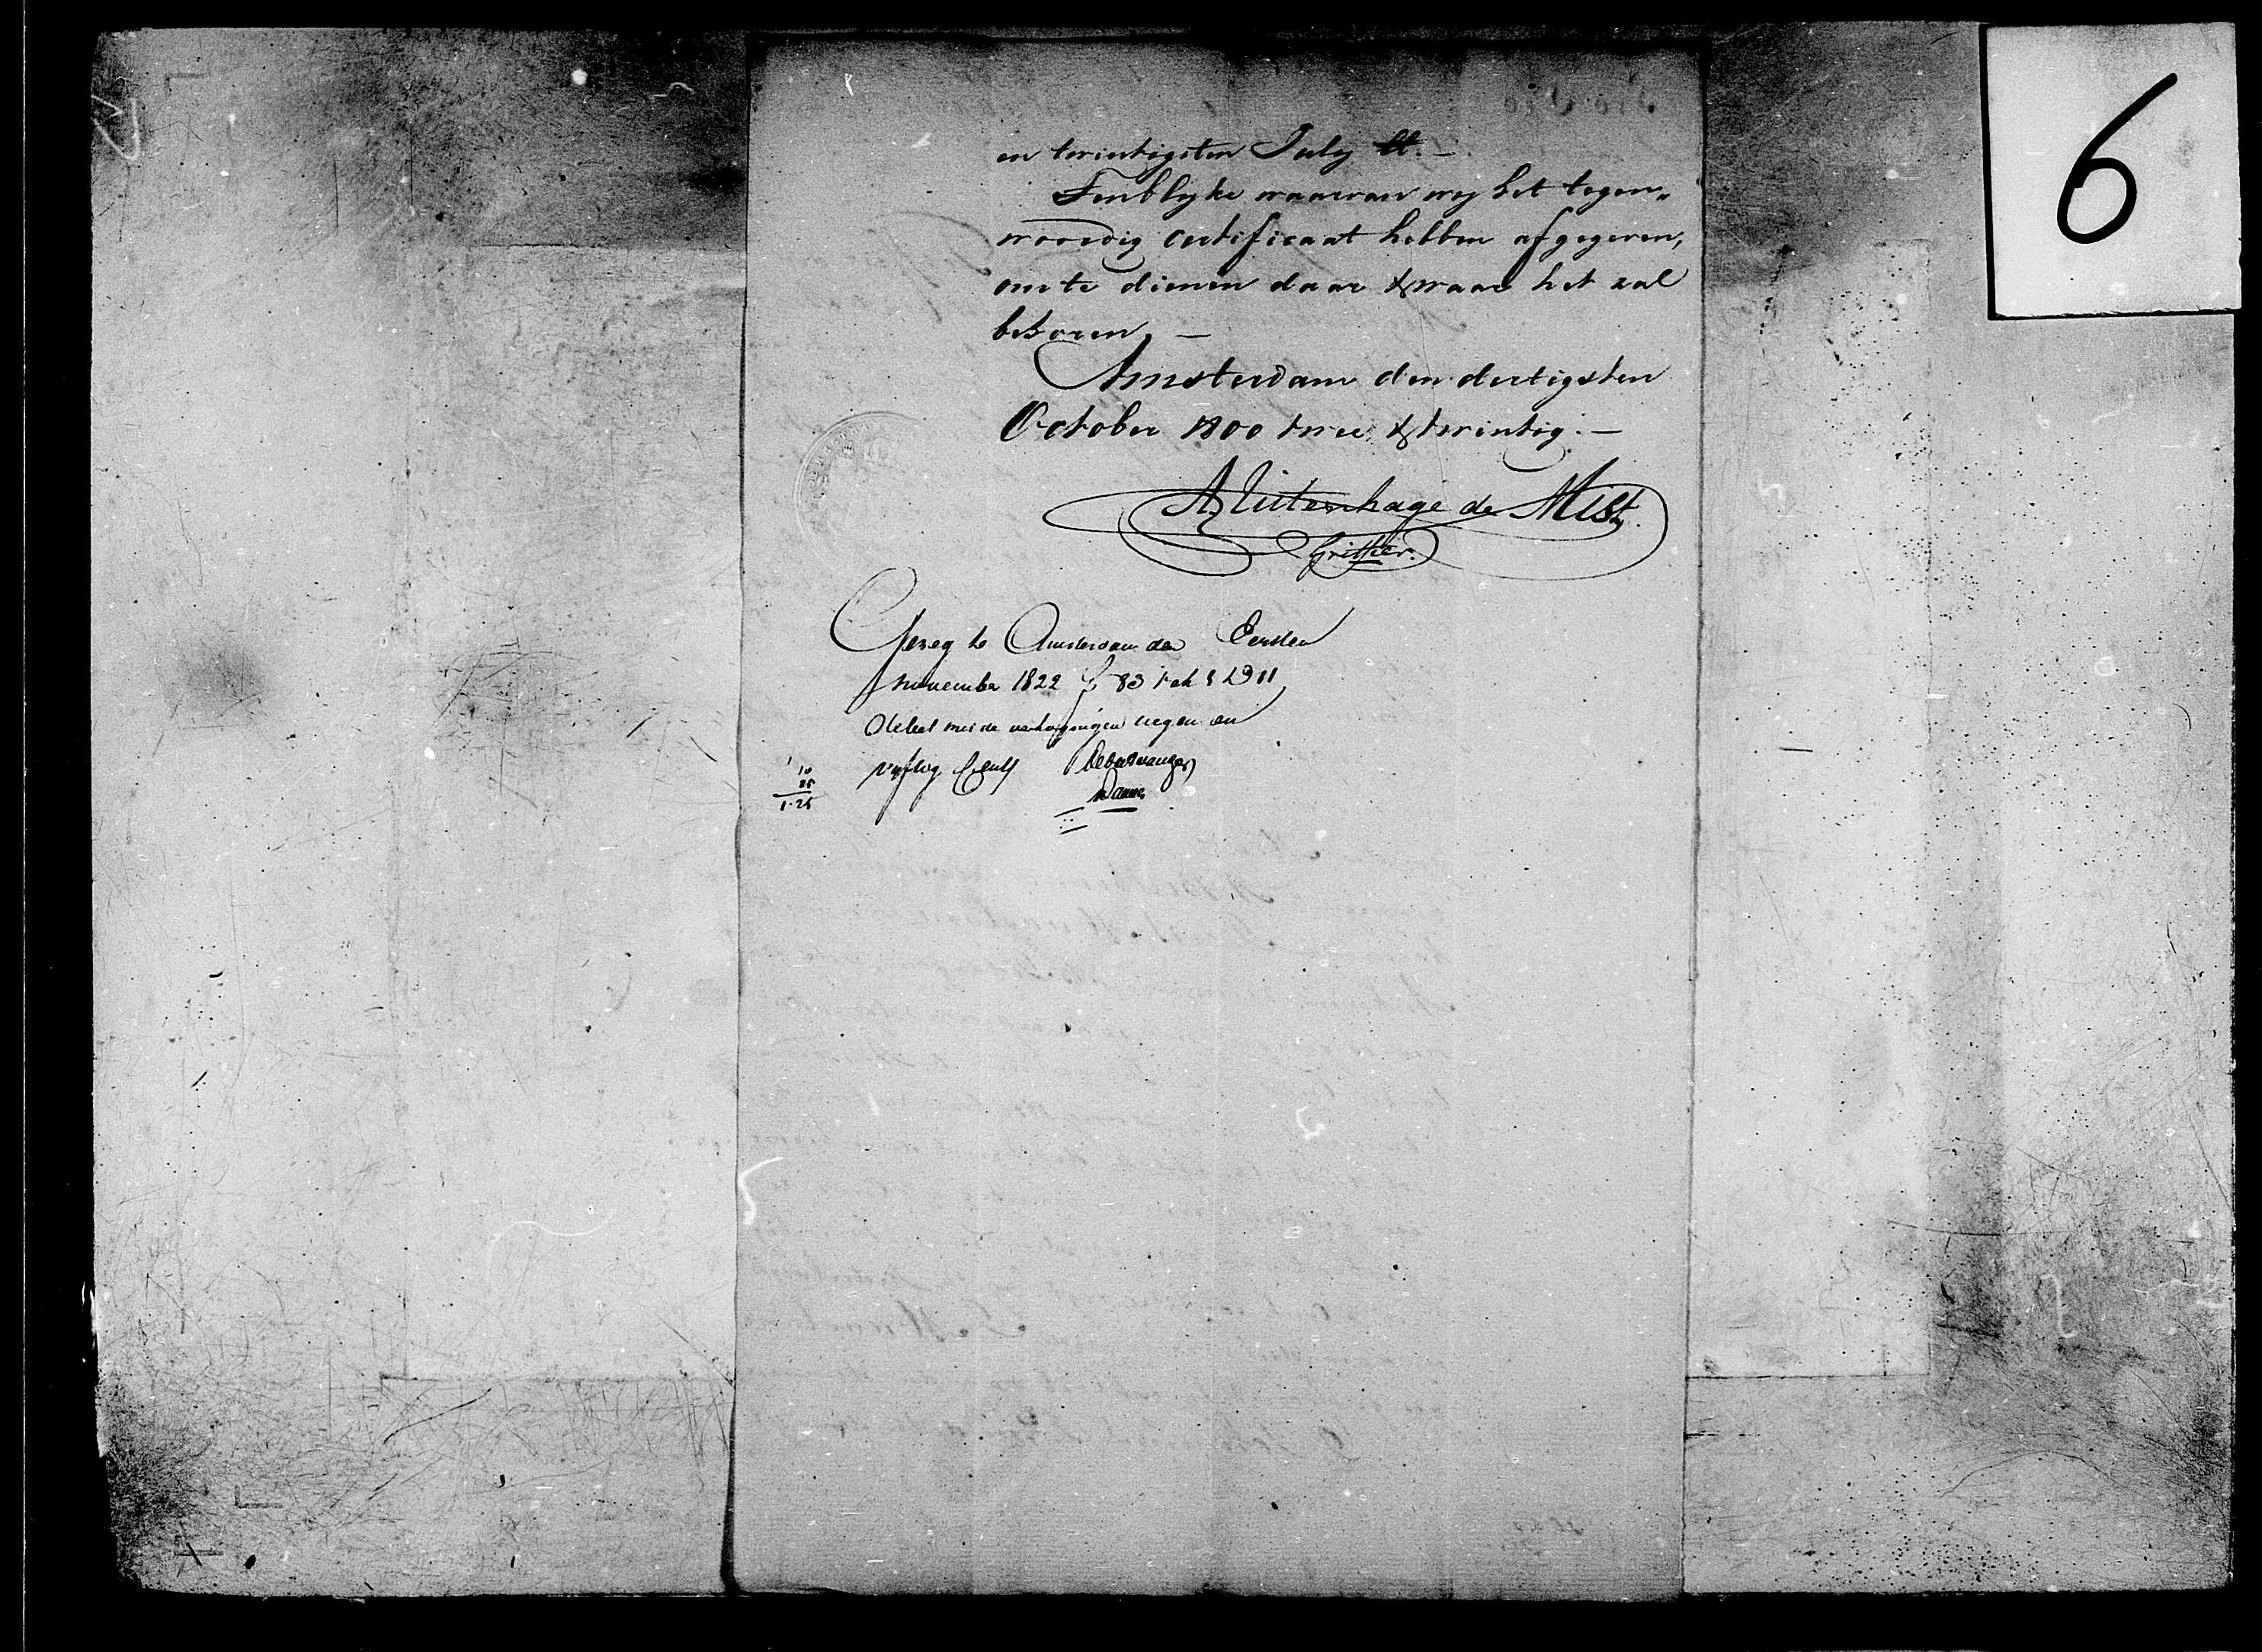 6
en twintigsten July ll. —
Tenblyke waarvan wy het tegen„
woordig certificaat hebben afgegeven,
om te dienen daar & waar het zal
behoren, —
Amsterdam den dertigsten
October 1800 twee & twintig. —
A. Uitenhage de Mist.
Griffier.
Gereg te Amsterdam den Eersten
november 1822 f 83
met de verhoogingen negen en
vyftig Cents De Ontvanger
10
25
1.25